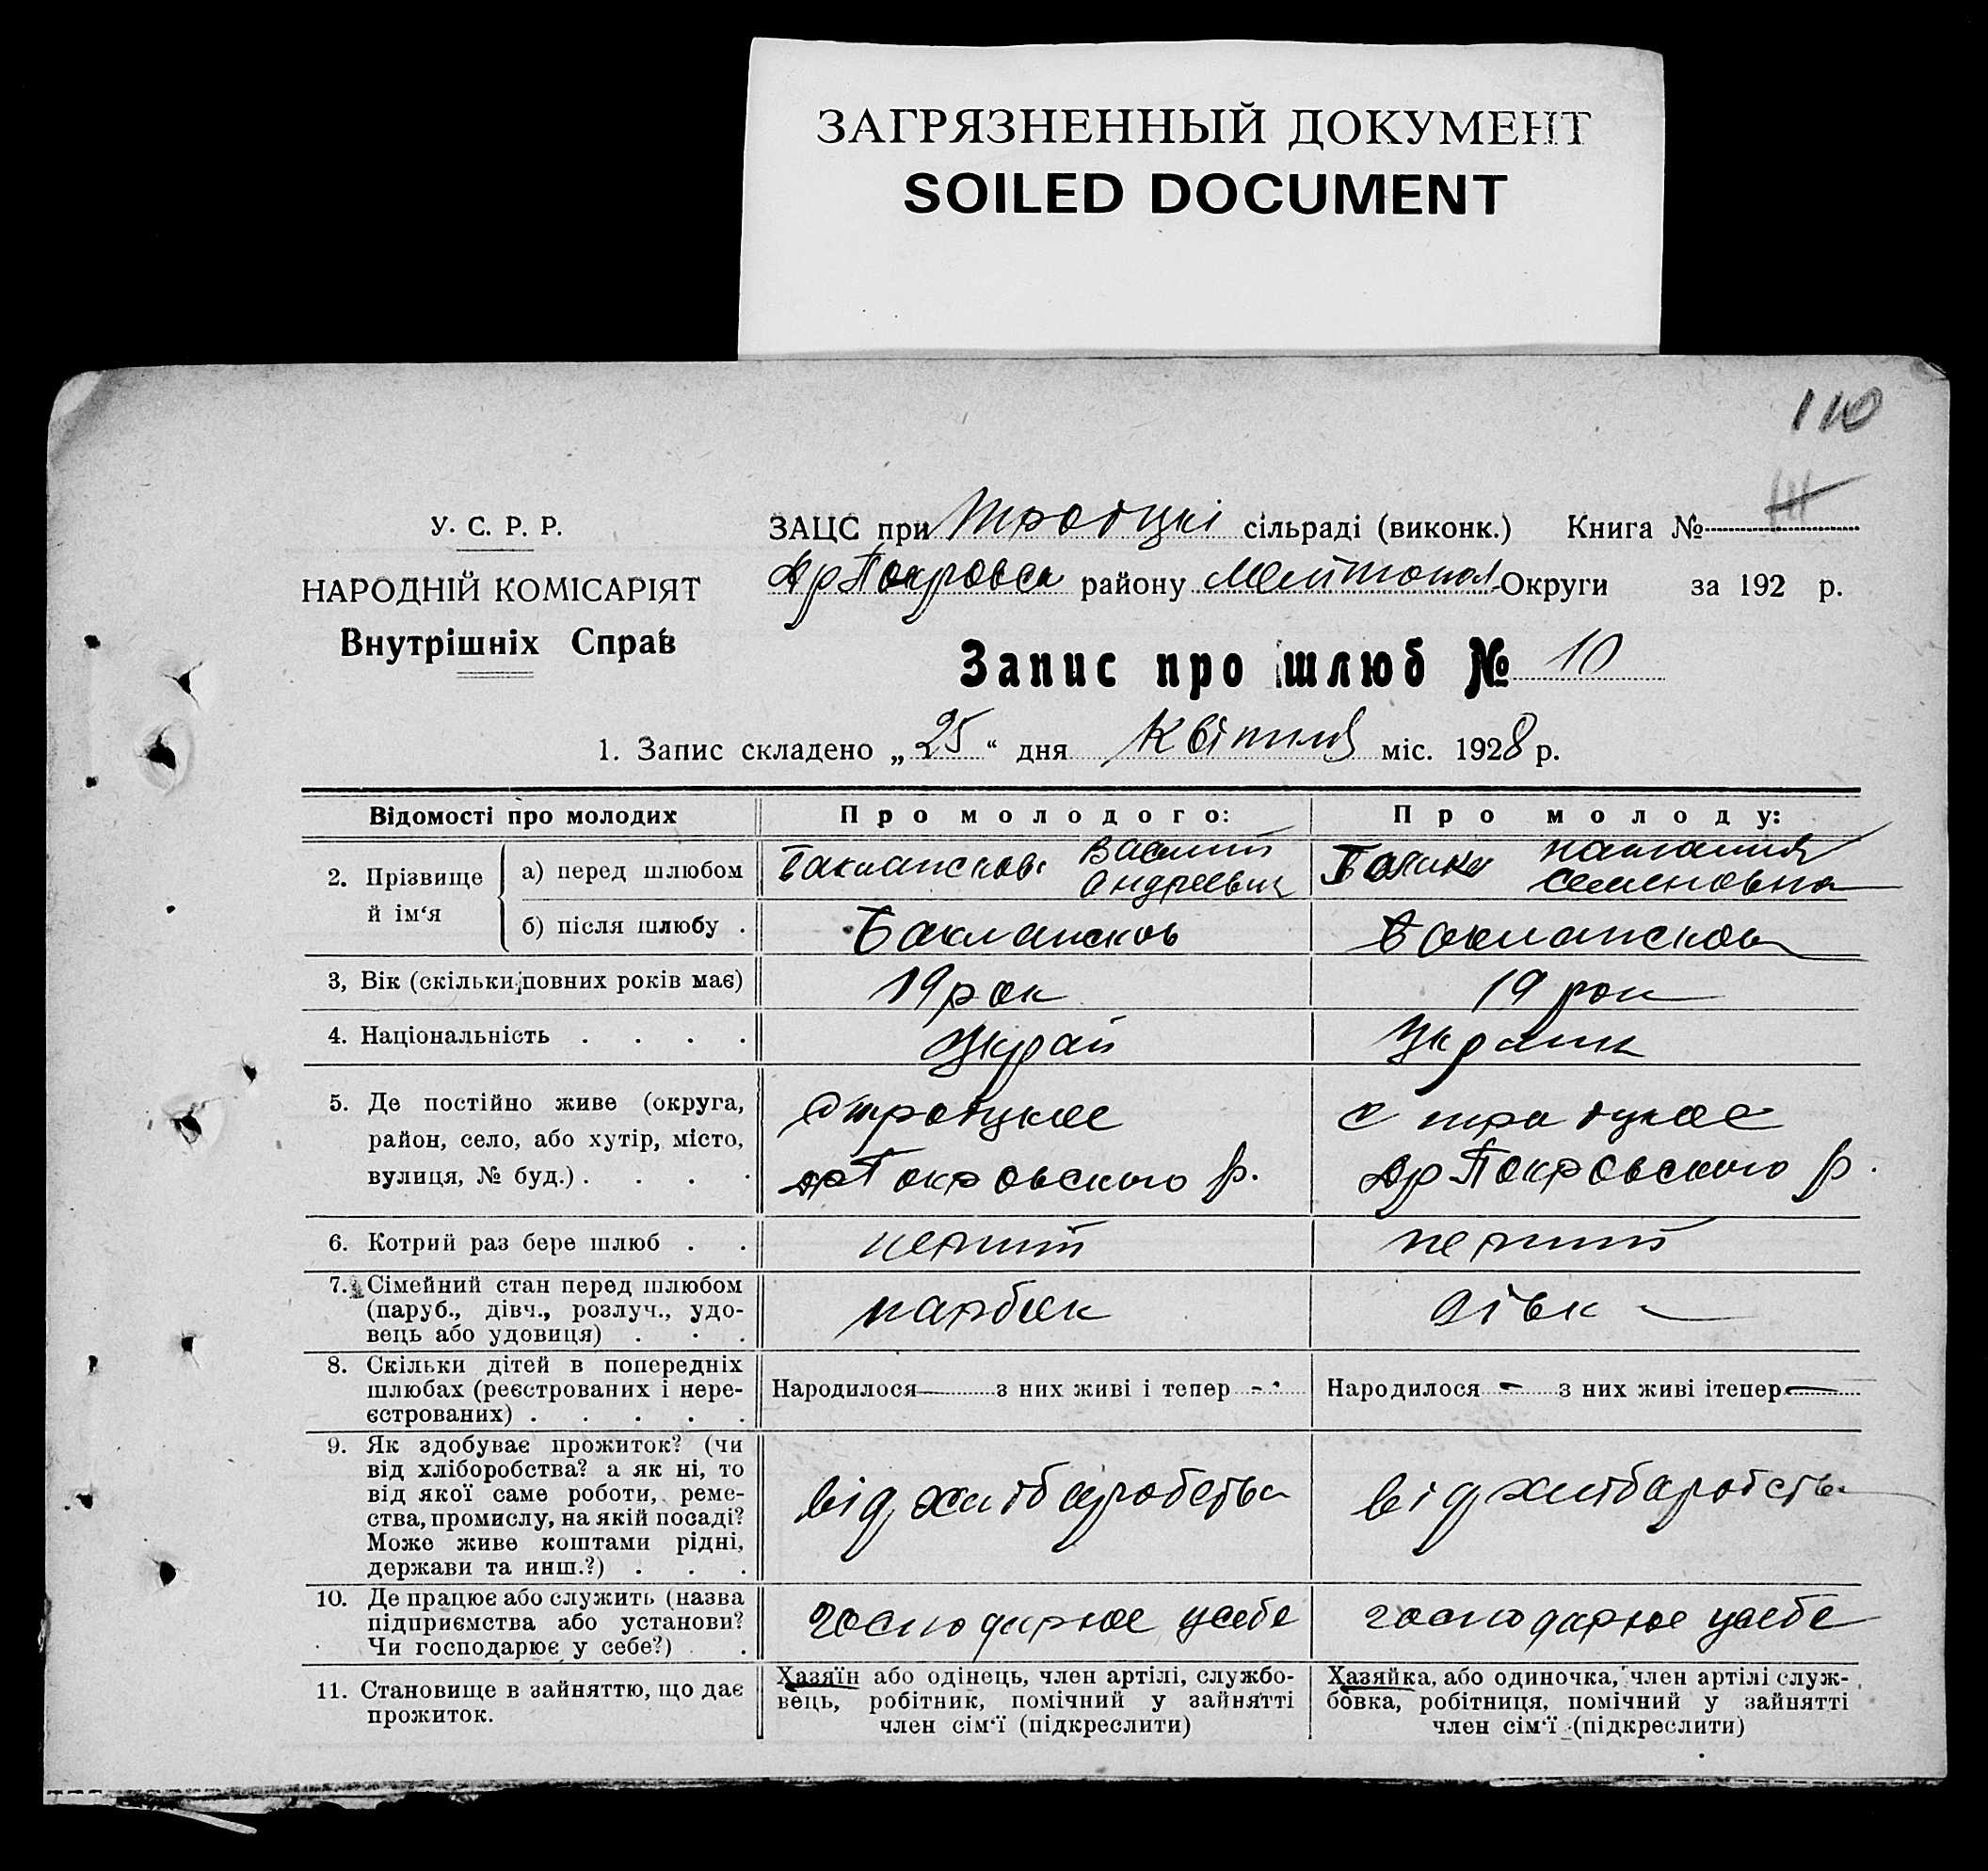 ЗАГРЯЗНЕННЫЙ ДОКУМЕНТ
SOILED DOCUMENT
110
У. С. Р. Р.
НАРОДНІЙ КОМІСАРІЯТ
Внутрішніх Справ
ЗАЦС при Троїцкі сільраді (виконк.) Книга №
району Округи за 192 р.
Запис про шлюб № 10
1. Запис складено „ 25 “ дня Квітня міс. 1928 р.
Відомості про молодих Про молодого: Про молоду:
2. Прізвище й ім‘я
а) перед шлюбом Василий Андреевич Наталия Семеновна
б) після шлюбу .
3, Вік (скільки повних років має) 19 рок 19 рок
4. Національність . . . . Украй
5. Де постійно живе (округа,
район, село, або хутір, місто,
вулиця, № буд.) . . . .
Покровского р. Др Покровского р.
6. Котрий раз бере шлюб . . перший перший
7. Сімейний стан перед шлюбом
(паруб., дівч., розлуч., удо-
вець або удовиця) . . . парбок дівк
8. Скільки дітей в попередніх
шлюбах (реєстрованих і нере-
єстрованих) . . . . .
Народилося — з них живі і тепер - Народилося - з них живі ітепер —
9. Як здобуває прожиток? (чи
від хліборобства? а як ні, то
від якої саме роботи, реме-
ства, промислу, на якій посаді?
Може живе коштами рідні,
держави та инш.?) . . .
від від
10. Де працює або служить (назва
підприємства або установи?
Чи господарює у себе?) .
господарюе усебе господарюе усебе
11. Становище в зайняттю, що дає
прожиток.
Хазяїн або одінець, член артілі, службо-
вець, робітник, помічний у зайнятті
член сім‘ї (підкреслити)
Хазяйка, або одиночка, член артілі служ-
бовка, робітниця, помічний у зайнятті
член сім‘ї (підкреслити)